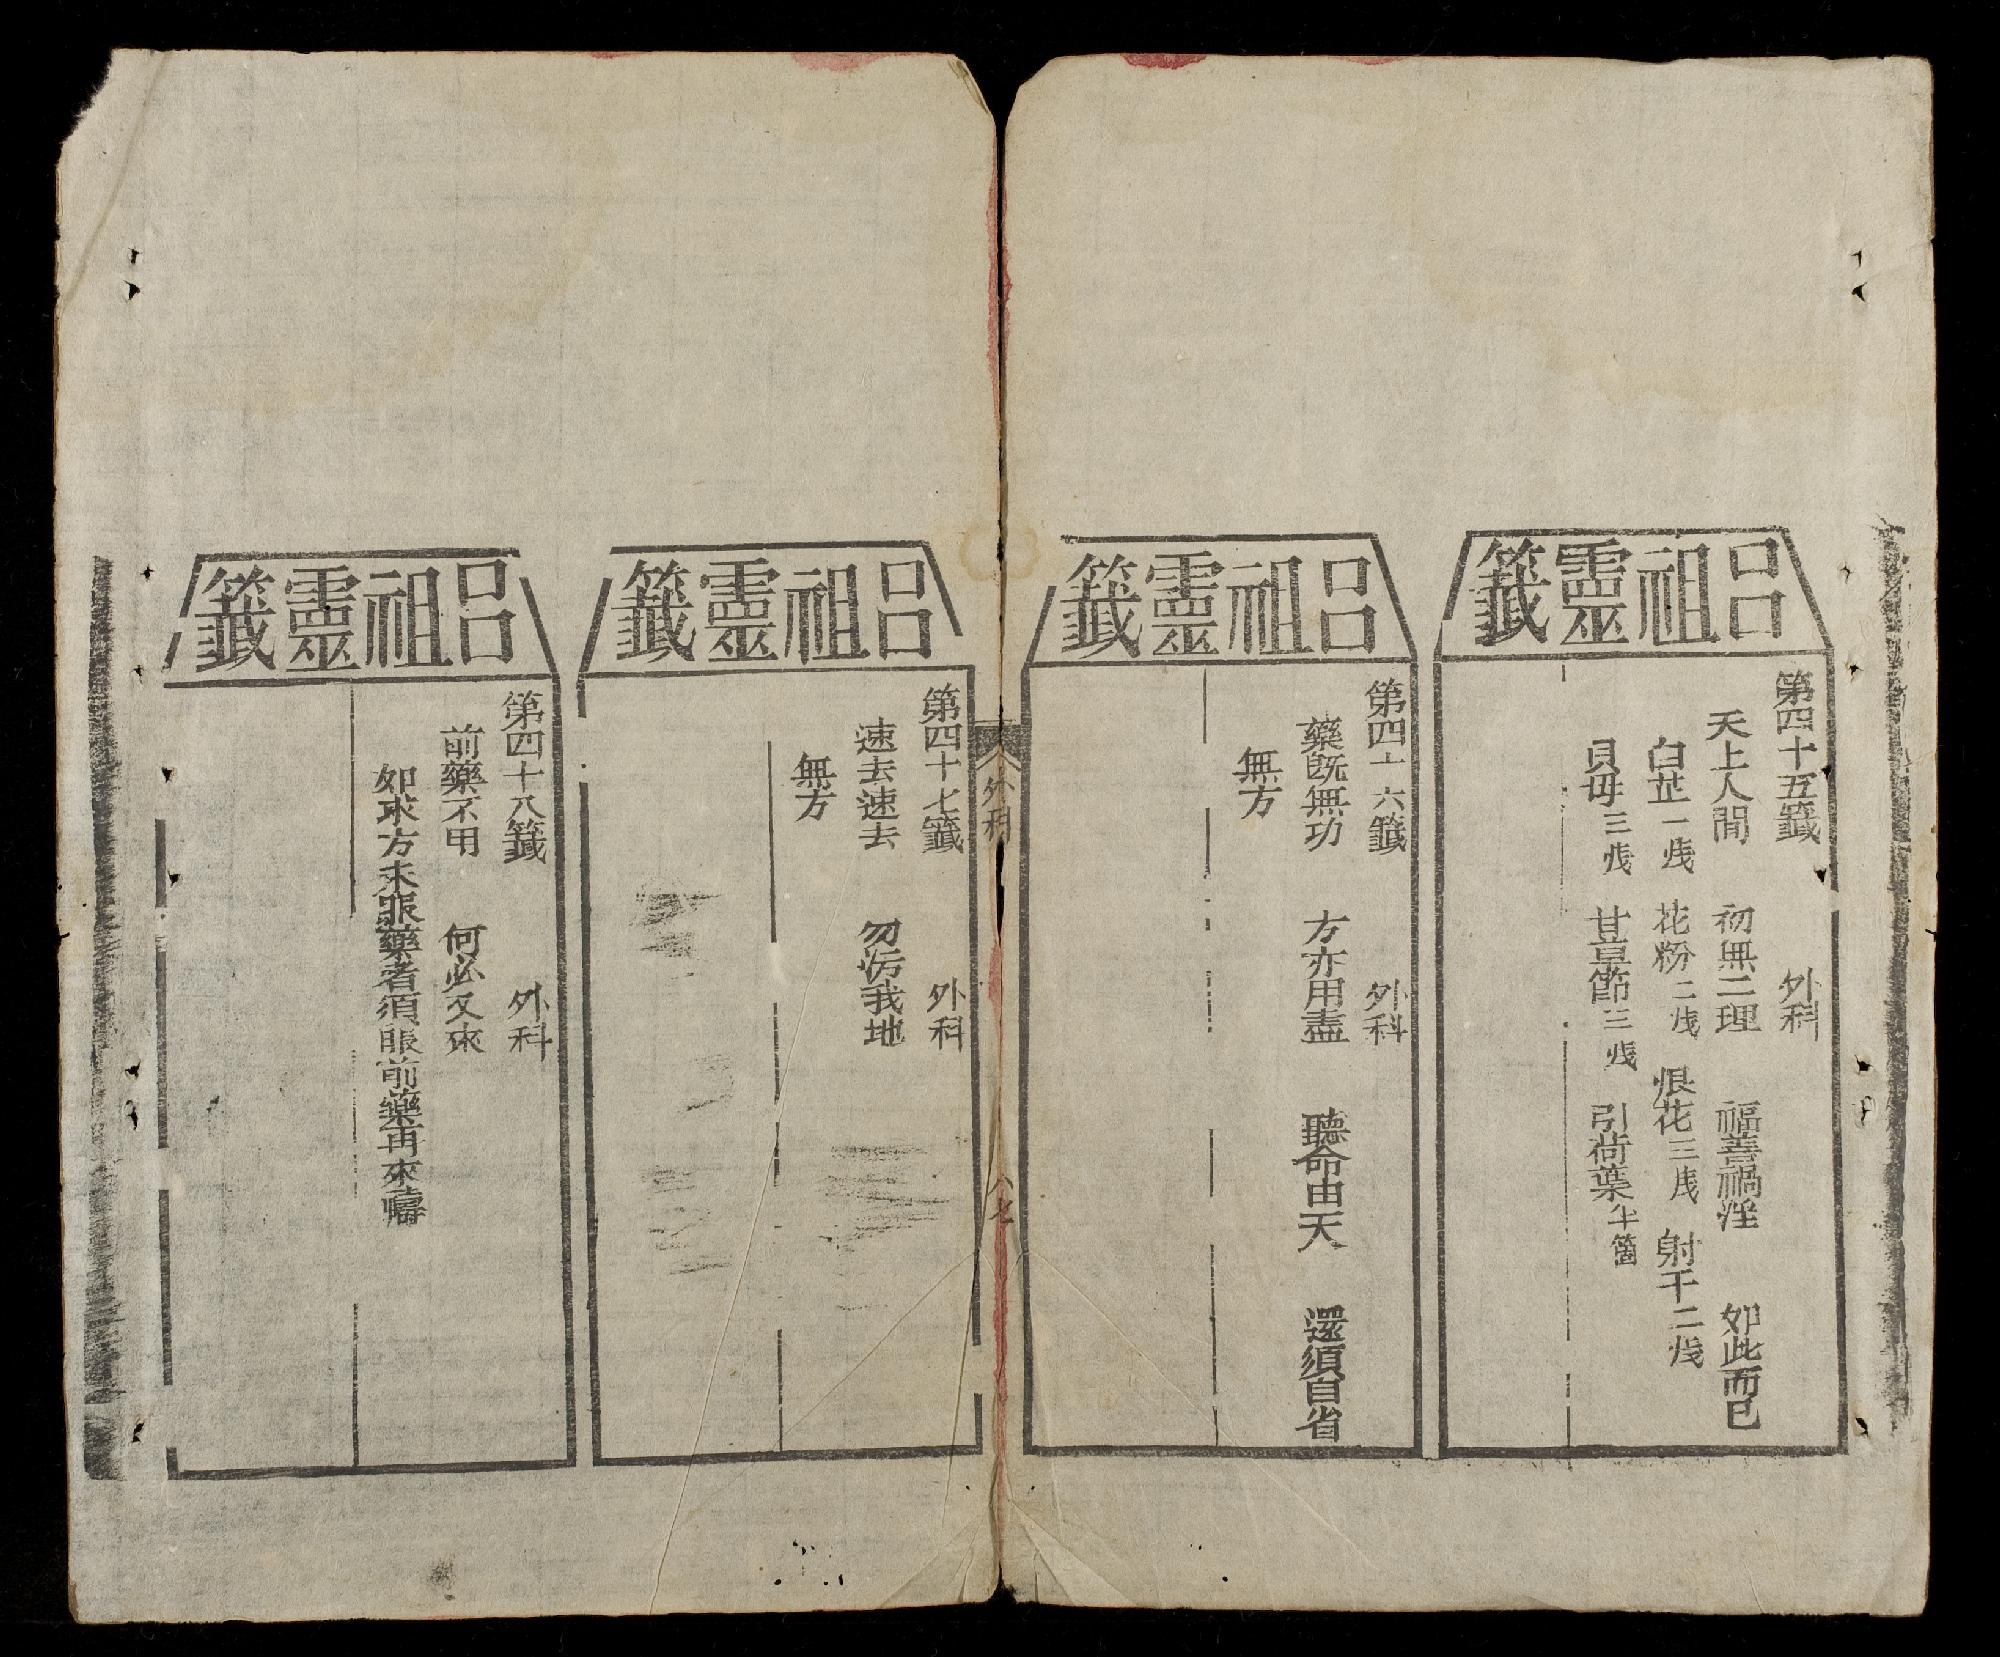 呂祖靈籤
第四十五籤 外科
天上人間 初無二理 福善禍淫 如此而已
白芷一戔 花粉二戔 银花三戔 射干二戔
貝母三戔 甘草節三戔 引荷葉半箇
呂祖靈籤
第四十六籤 外科
藥既無功 方亦用盡 聽命由天 還須自省
無方
外科
六七
呂祖靈籤
第四十七籤 外科
速去速去 勿污我地
無方
呂祖靈籤
第四十八籤 外科
前藥不用 何必又來
如求方未服藥者須服前藥再來禱